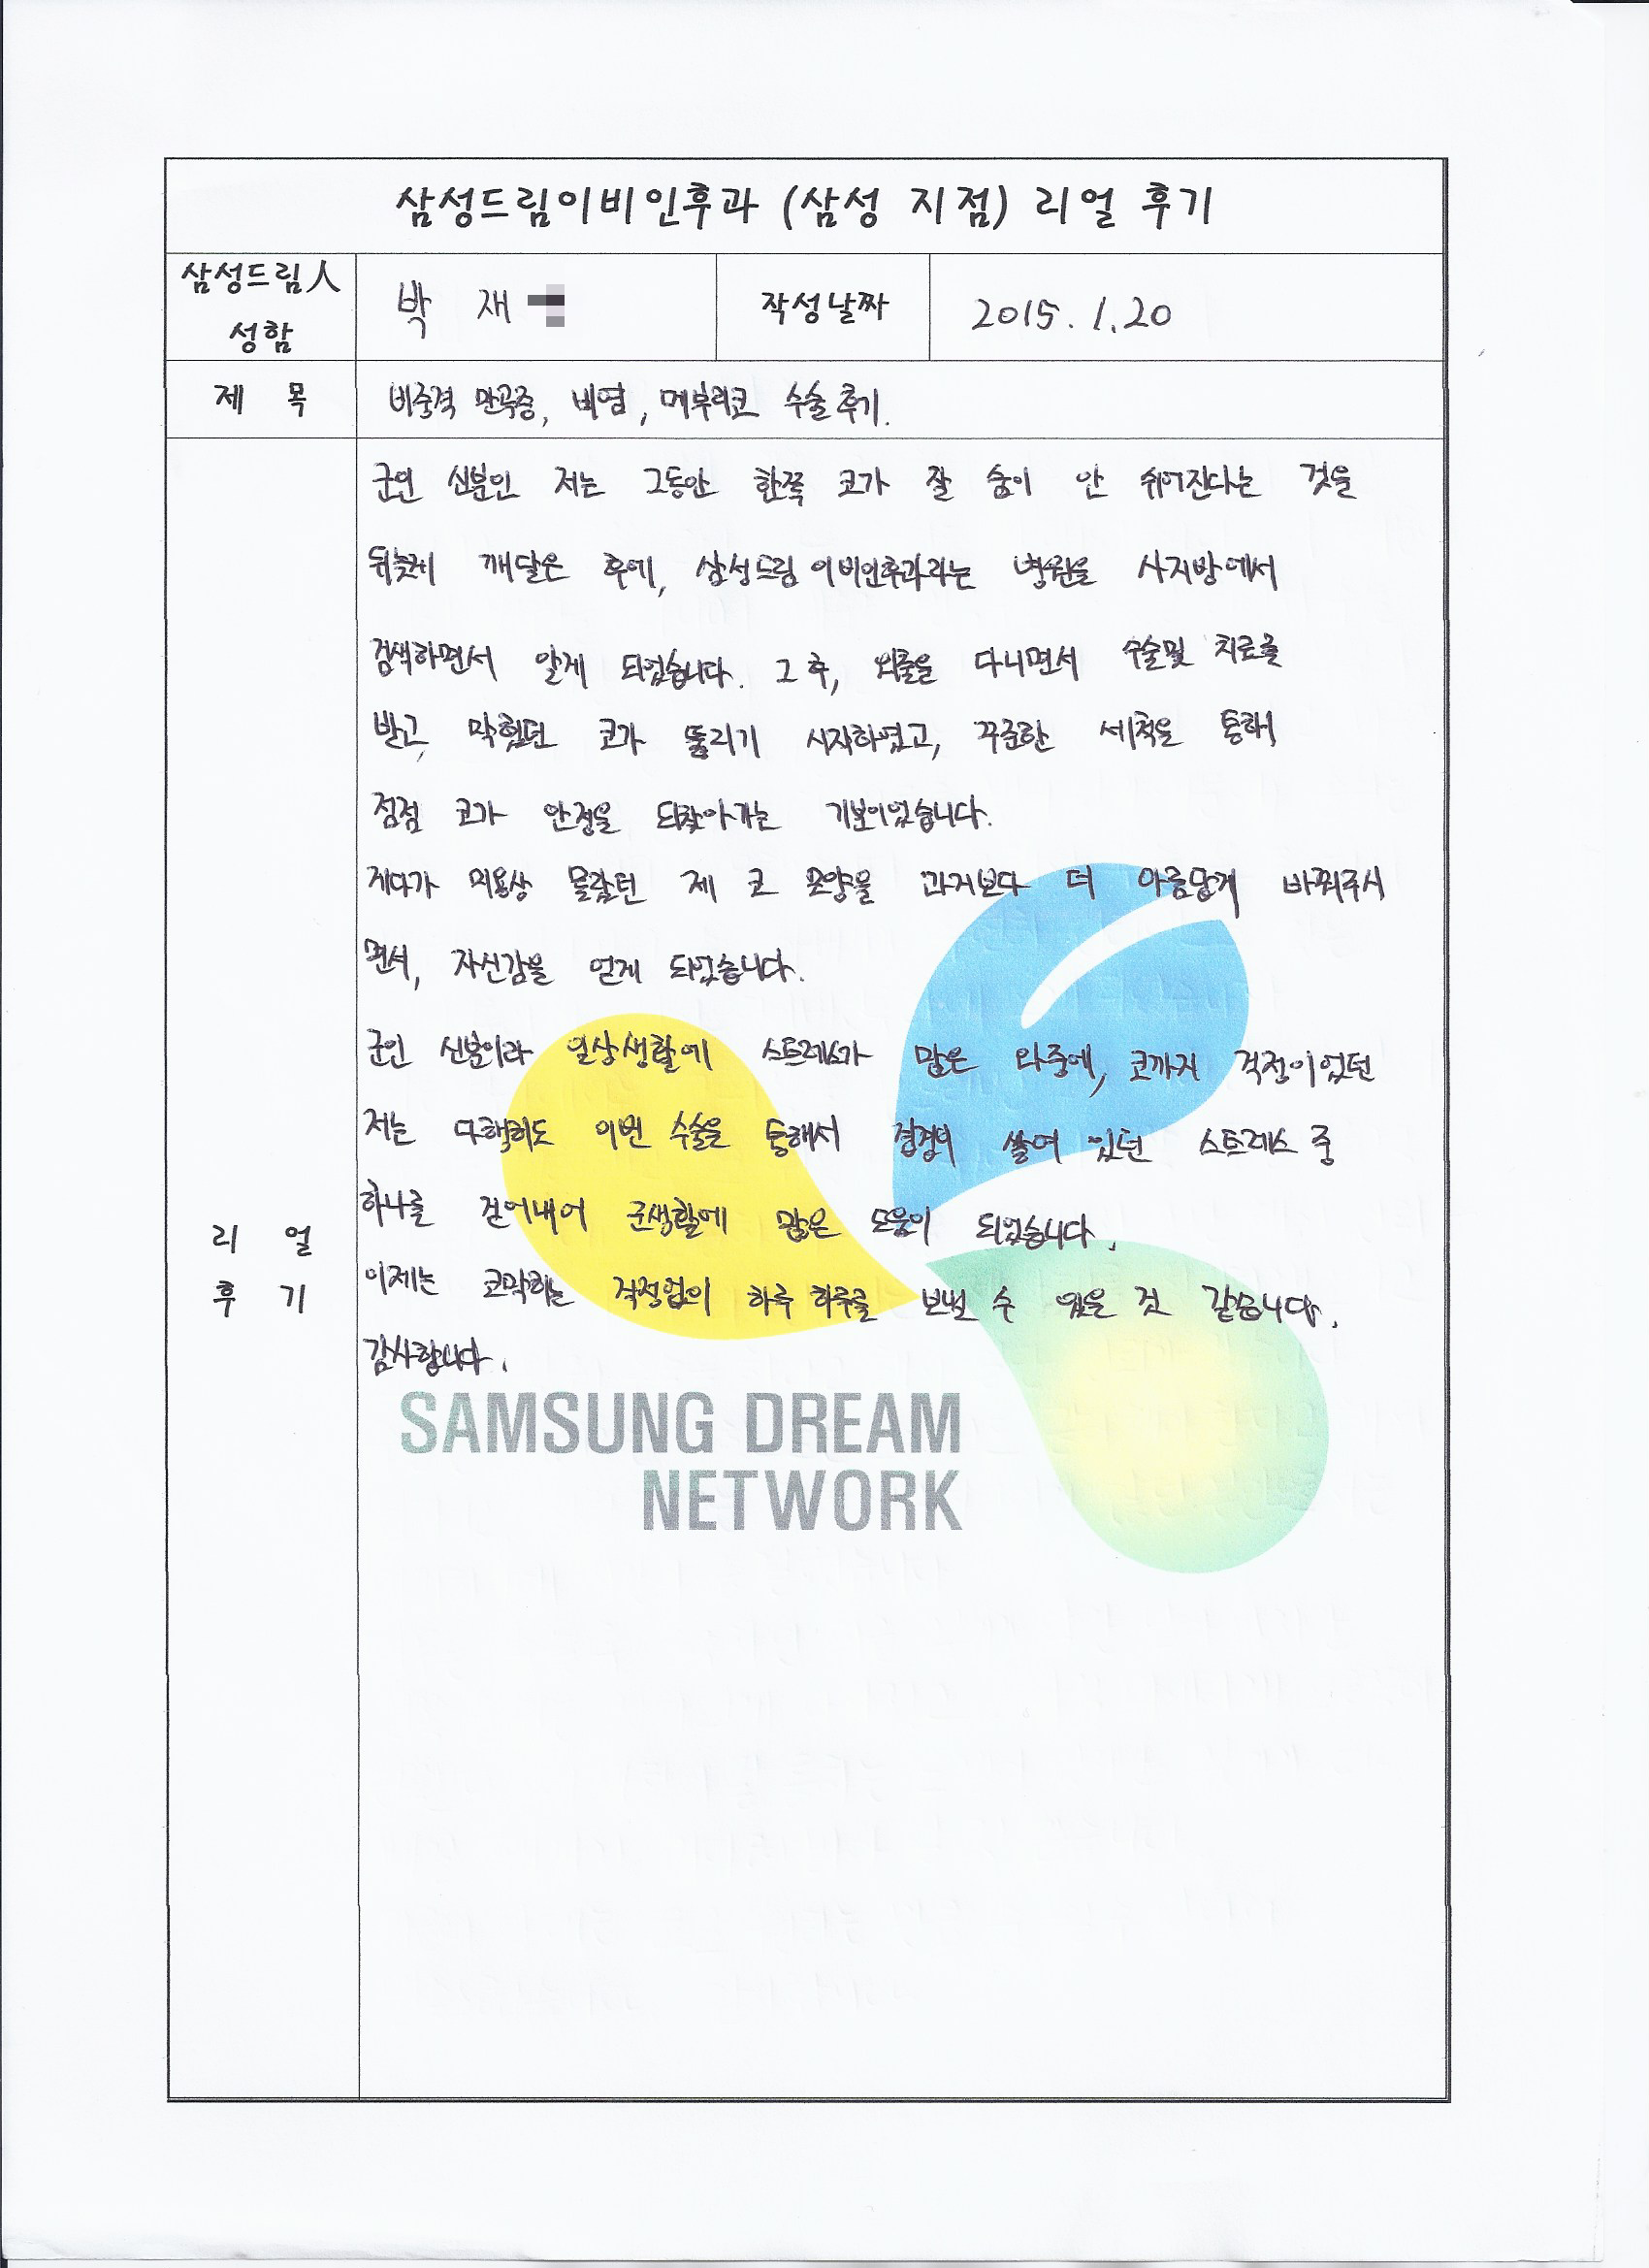 삼성드림이비인후과 (삼성 지점) 리얼 후기
삼성드림人 성함
박 재
작성날짜
2015. 1. 20
제 목
비중격 만곡증, 비염, 메부리코 수술 후기.
군인 신분인 저는 그동안 한쪽 코가 잘 숨이 안 쉬어진다는 것을
뒤늦게 깨달은 후에, 삼성드림 이비인후과라는 병원을 사지방에서
검색하면서 알게 되었습니다. 그 후, 외출을 다니면서 수술및 치료를
받고, 막혔던 코가 뚫리기 시작하였고, 꾸준한 세척을 통해
점점 코가 안정을 되찾아가는 기분이었습니다.
게다가 미용상 몰랐던 제 코 모양을 과거보다 더 아름답게 바꿔주시
면서, 자신감을 얻게 되었습니다.
군인 신분이라 일상생활에 스트레스가 많은 와중에, 코까지 걱정이었던
저는 다행히도 이번 수술을 통해서 겹겹이 쌓여 있던 스트레스 중
하나를 걷어내어 군생활에 많은 도움이 되었습니다.
이제는 코막히는 걱정없이 하루 하루를 보낼 수 있을 것 같습니다.
감사합니다.
리 얼
후 기
SAMSUNG DREAM
NETWORK